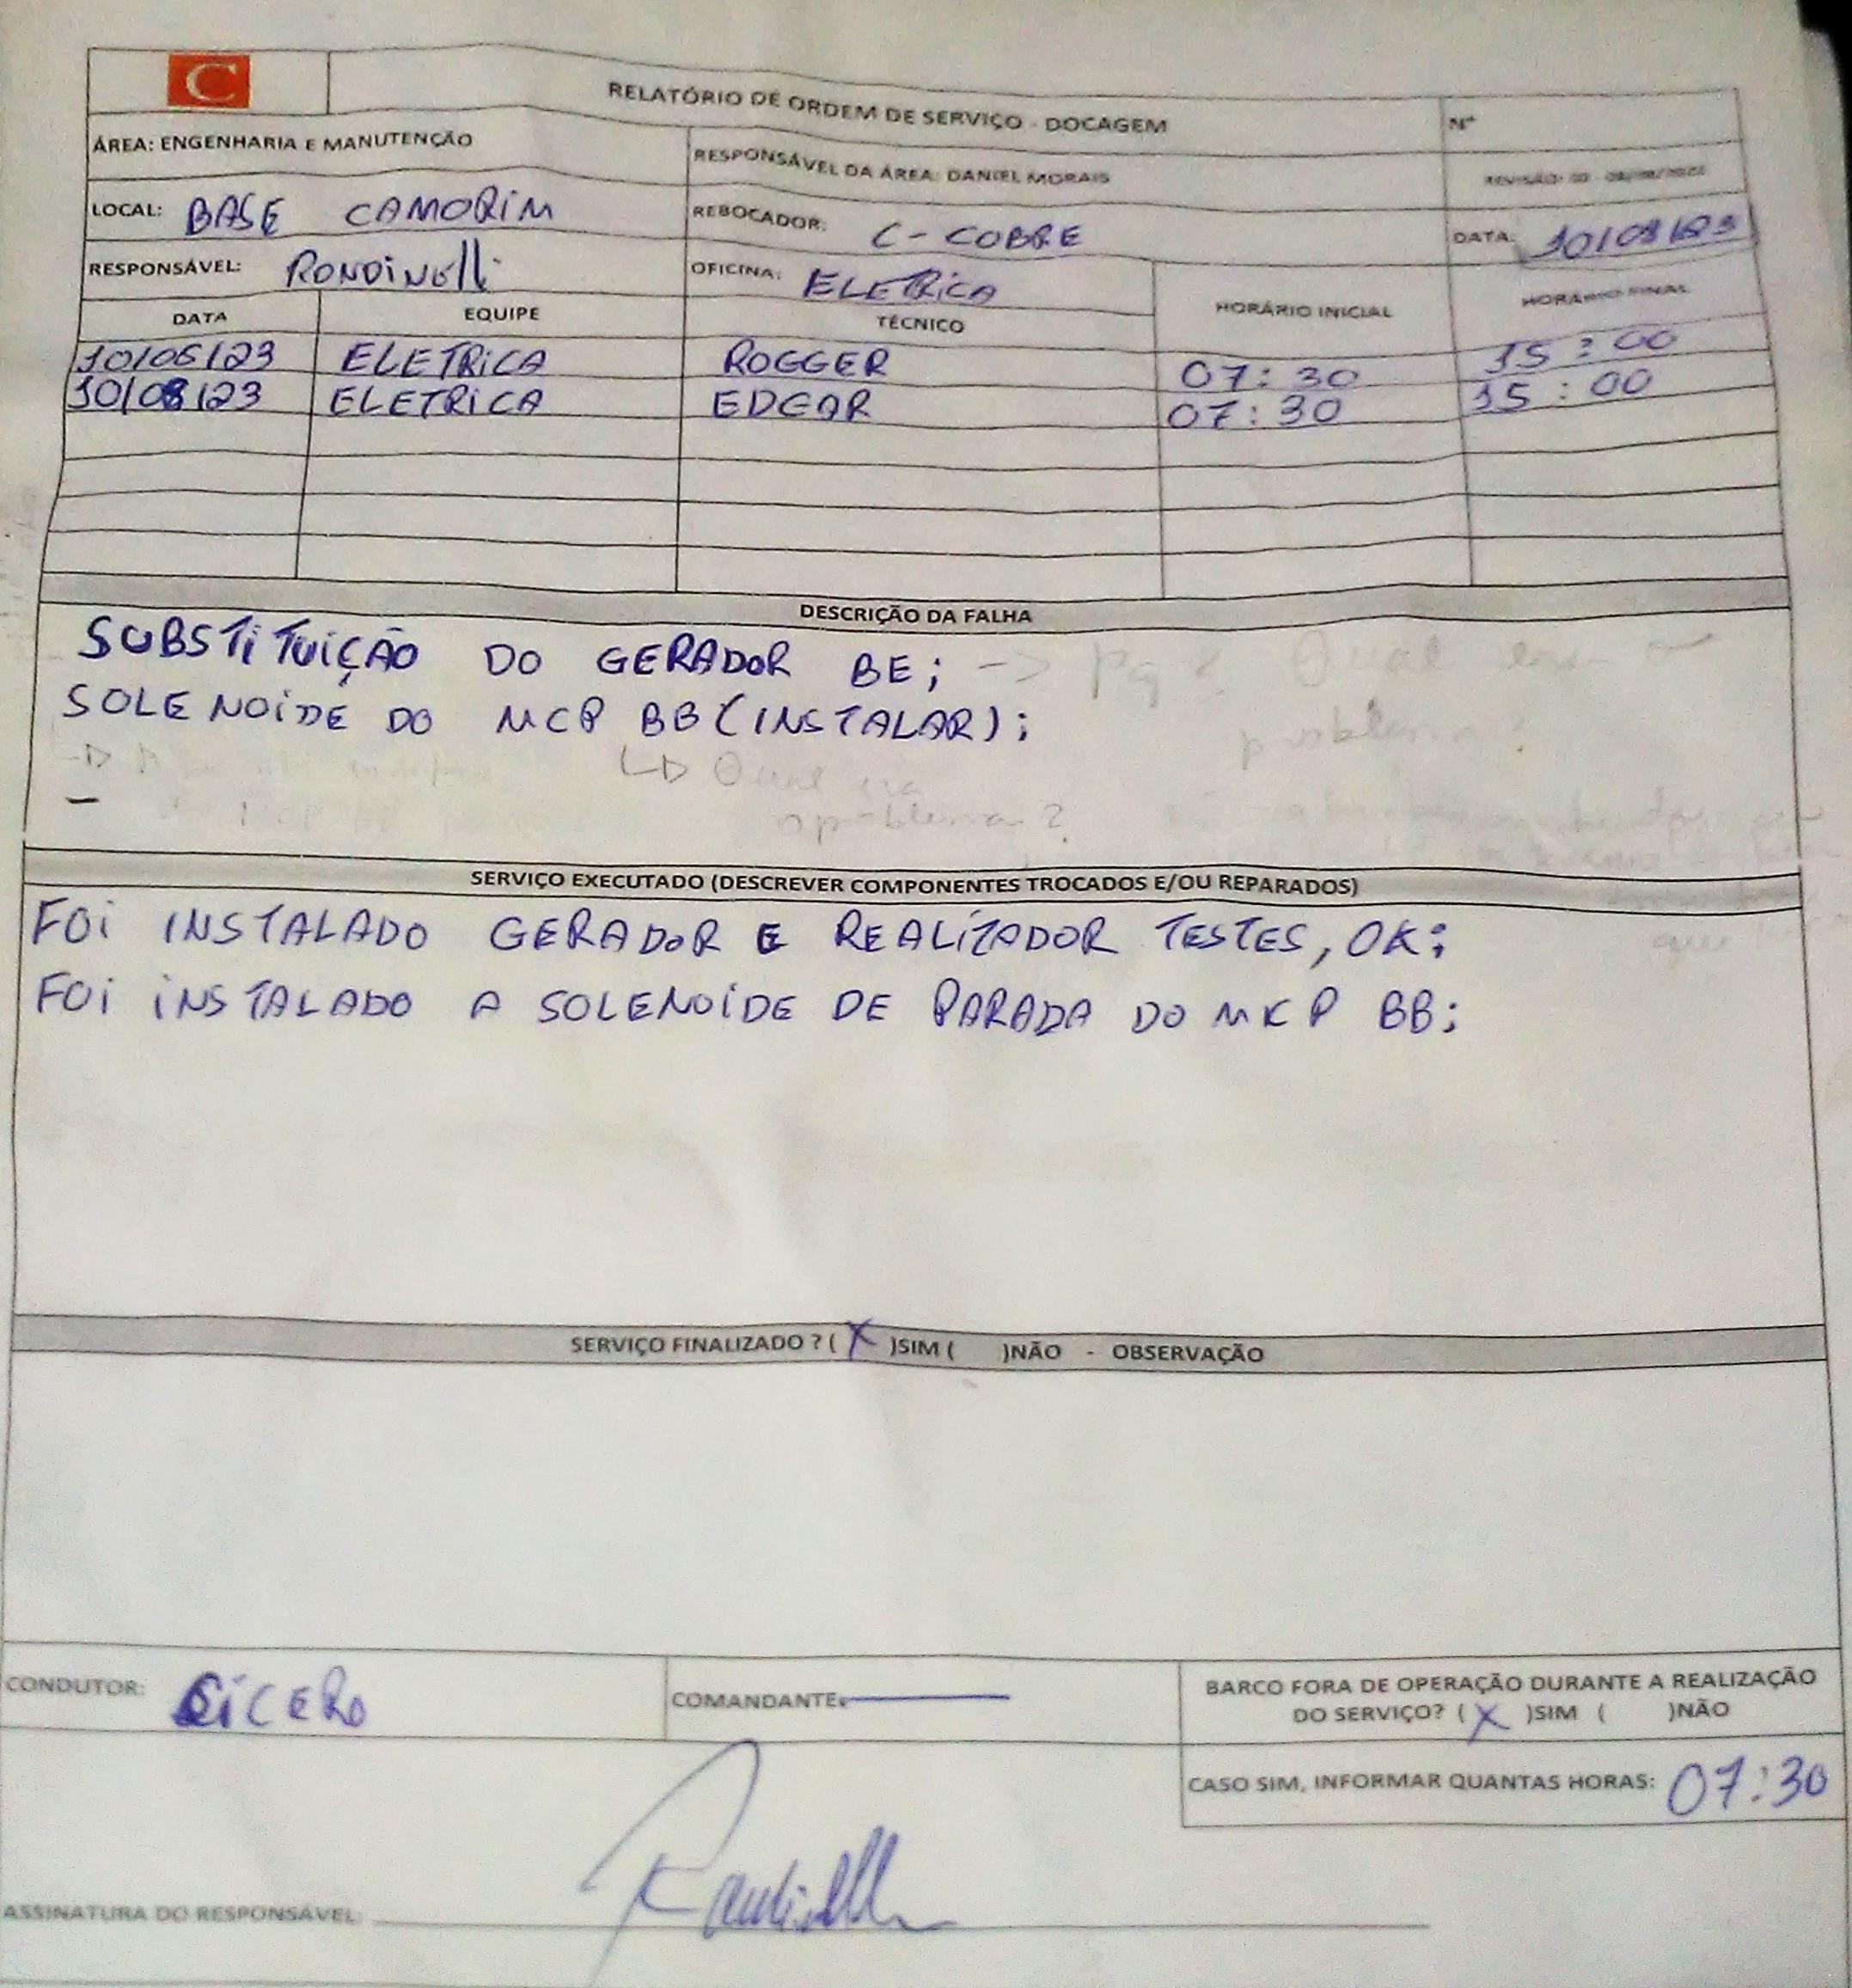 C
RELATÓRIO DE ORDEM DE SERVIÇO - DOCAGEM
N°
ÁREA: ENGENHARIA E MANUTENÇÃO
RESPONSÁVEL DA ÁREA: DANIEL MORAIS
REVISÃO: 00 -
LOCAL: BASE CAMORIM
REBOCADOR: C - COBRE
DATA: 10/08/23
RESPONSÁVEL: RONDINELLI
OFICINA: ELETRICA
HORÁRIO INICIAL
HORÁRIO FINAL
DATA EQUIPE TÉCNICO
10/08/23 ELETRICA ROGGER 07:30 15:00
10/08/23 ELETRICA EDGAR 07:30 15:00
DESCRIÇÃO DA FALHA
SUBSTITUIÇÃO DO GERADOR BE; -> Pq? Qual era o
problema?
SOLENOIDE DO MCP BB (INSTALAR);
Qual era
o problema?
SERVIÇO EXECUTADO (DESCREVER COMPONENTES TROCADOS E/OU REPARADOS)
FOI INSTALADO GERADOR E REALIZADOR TESTES, OK;
FOI INSTALADO A SOLENOIDE DE PARADA DO MKP BB;
SERVIÇO FINALIZADO ? ( X )SIM ( )NÃO - OBSERVAÇÃO
CONDUTOR: CICERO
COMANDANTE:
BARCO FORA DE OPERAÇÃO DURANTE A REALIZAÇÃO
DO SERVIÇO? ( X )SIM ( )NÃO
CASO SIM, INFORMAR QUANTAS HORAS: 07:30
ASSINATURA DO RESPONSÁVEL: Rondinelli